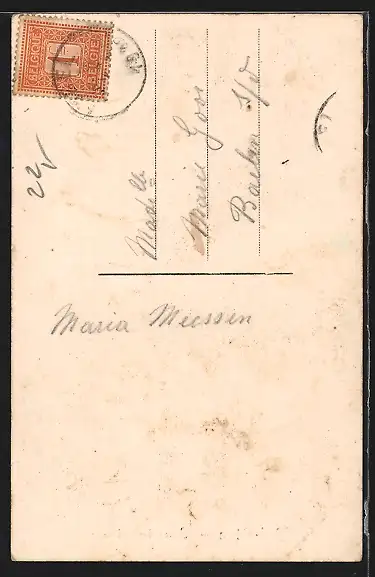 BELGIQUE 1 BELGIË
22
Madelle
Marie Goor
Baelen s/v
Maria Meessen